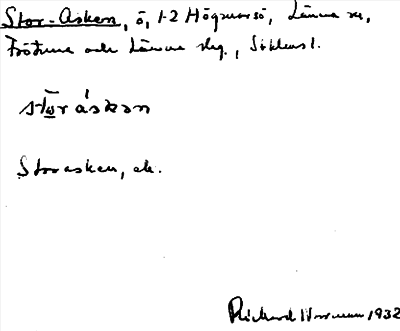 Stor-Asken, ö, 1-2 Högmarsö, Länna sn,
Frötuna och Länna skg., Sthlms l.
stωr áskən
Storasken, ek.
Richard Norman 1932